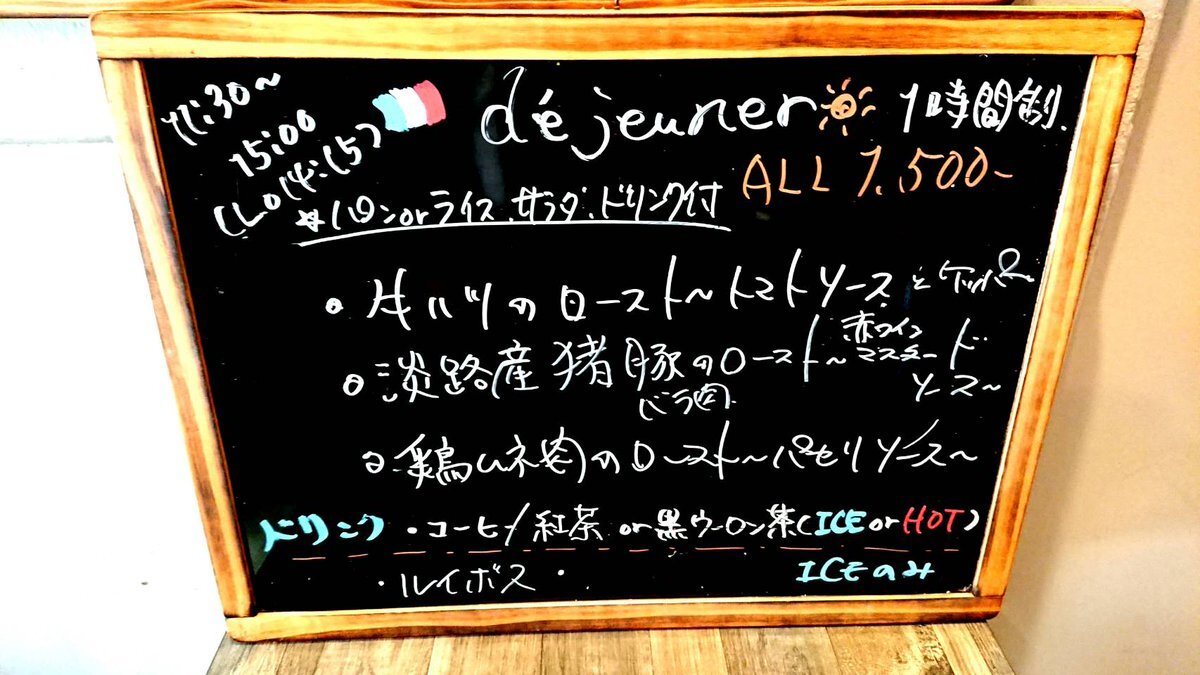 11:30~
15:00
(L.O 14:15)
déjeuner
1時間制.
ALL 1.500-
☆パンorライス.サラダ.ドリンク付
・牛ハツのロースト~トマトソースとケッパー~
・淡路産猪豚のロースト~赤ワインマスタードソース~
バラ肉
・鶏ムネ肉のロースト~パセリソース~
ドリンク ・コーヒー/紅茶 or 黒ウーロン茶(ICE or HOT)
・ルイボス・ ICEのみ